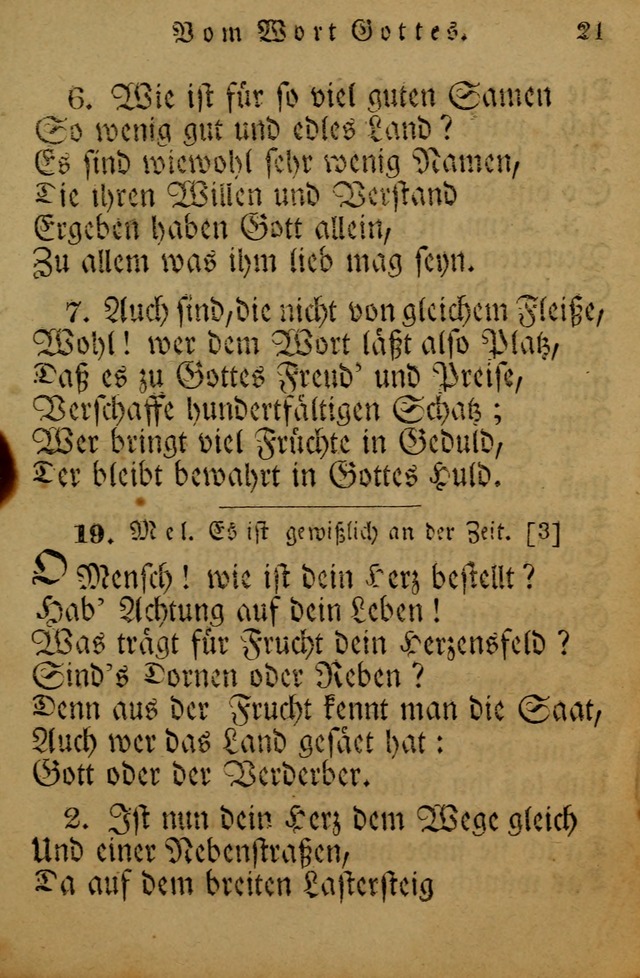 Vom Wort Gottes. 21
6. Wie ist für so viel guten Samen
So wenig gut und edles Land?
Es sind wiewohl sehr wenig Namen,
Die ihren Willen und Verstand
Ergeben haben Gott allein,
Zu allem was ihm lieb mag seyn.
7. Auch sind, die nicht von gleichem Fleiße,
Wohl! wer dem Wort läßt also Platz,
Daß es zu Gottes Freud' und Preise,
Verschaffe hundertfältigen Schatz;
Wer bringt viel Früchte in Geduld,
Der bleibt bewahrt in Gottes Huld.
19. Mel. Es ist gewißlich an der Zeit. [3]
O Mensch! wie ist dein Herz bestellt?
Hab' Achtung auf dein Leben!
Was trägt für Frucht dein Herzensfeld?
Sind's Dornen oder Reben?
Denn aus der Frucht kennt man die Saat,
Auch wer das Land gesäet hat:
Gott oder der Verderber.
2. Ist nun dein Herz dem Wege gleich
Und einer Nebenstraßen,
Da auf dem breiten Lastersteig